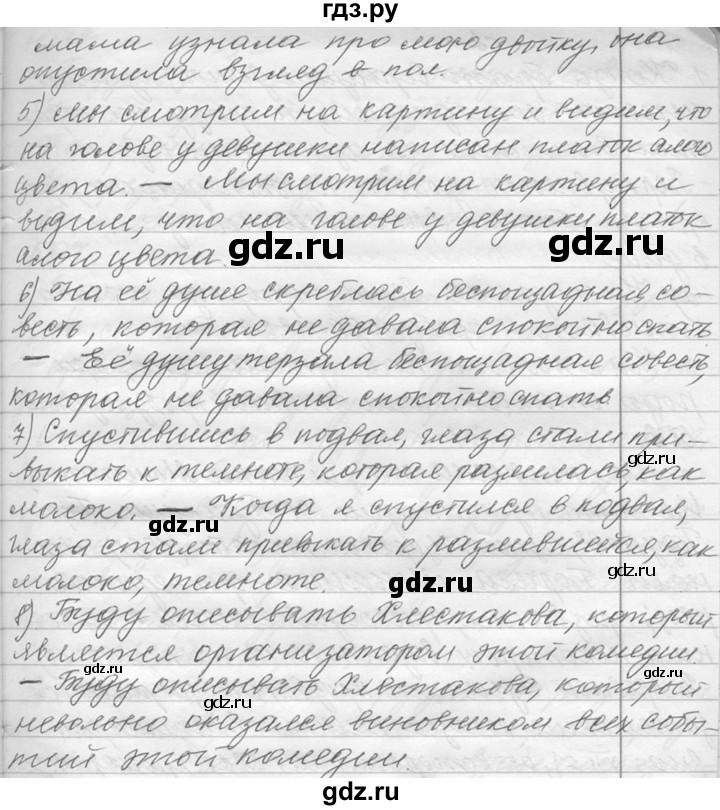 гдз.ру
мама узнала про мою двойку, она
опустила взгляд в пол.
5) Мы смотрим на картину и видим, что
на голове у девушки написан платок алого
цвета. — Мы смотрим на картину и
видим, что на голове у девушки платок
алого цвета.
gdz.ru
gdz.ru
6) На её душе скреблась беспощадная со-
весть, которая не давала спокойно спать
— Её душу терзала беспощадная совесть,
которая не давала спокойно спать
7) Спустившись в подвал, глаза стали при-
выкать к темноте, которая разлилась, как
gdz.ru
молоко. — Когда я спустился в подвал,
gdz.ru
глаза стали привыкать к разлившейся, как
молоко, темноте.
gdz.ru
8) Буду описывать Хлестакова, который
является организатором этой комедии.
gdz.ru
gdz.ru
— Буду описывать Хлестакова, который
невольно оказался виновником всех собы-
тий этой комедии.
gdz.ru
gdz.ru